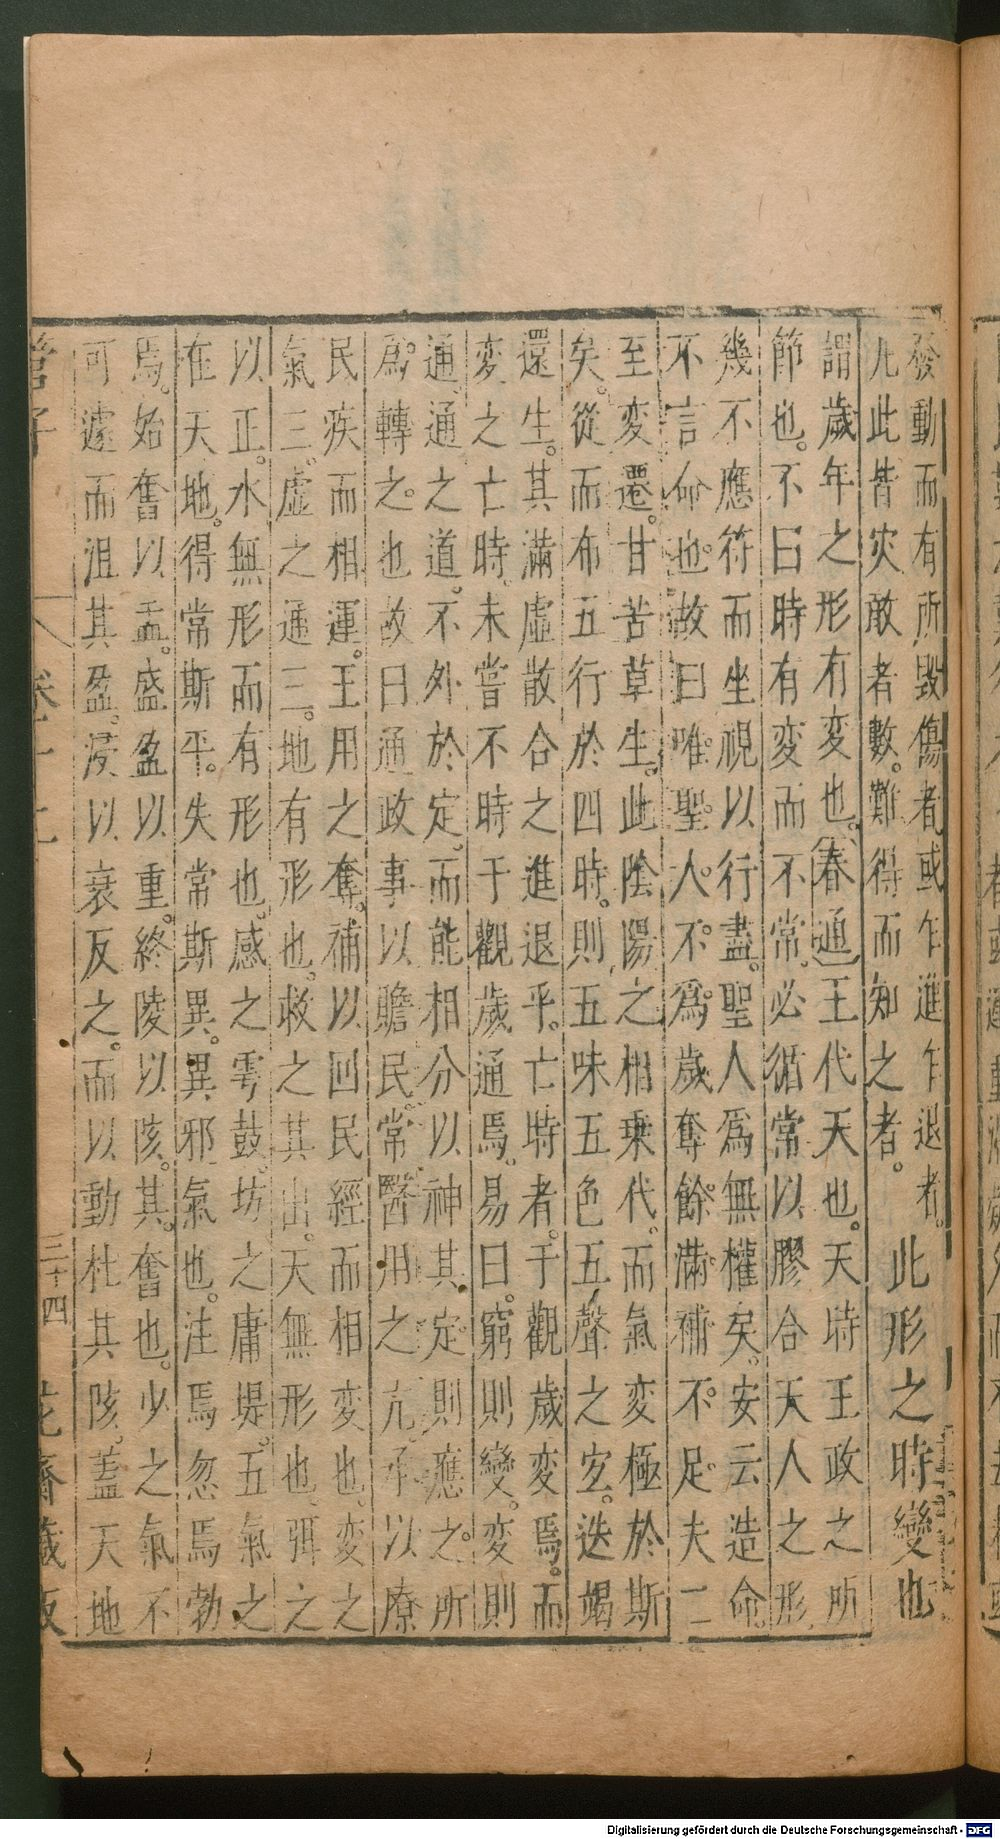 發動而有所毀傷者或乍進乍退者。此形之時變也
凡此皆灾敵者數。難得而知之者。
謂歲年之形有変也。春通王代天也。天時王政之所
節也。不曰時有変而不常。必循常以膠合天人之形。
幾不應符而坐視以行盡。聖人爲無權矣。安云造命。
不言命也。故曰唯聖人不爲歲奪餘滿補不足。夫二
至変遷。甘苦草生。此陰陽之相乗代。而氣変極於斯
矣。從而布五行於四時。則五味五色五聲之㝎。迭竭
還生。其滿虛散合之進退乎。亡時者。于觀歲変焉。而
変之亡時。未嘗不時于觀歲通焉。易曰。窮則變。変則
通。通之道。不外於定。而能相分以神其定。則應之。所
爲轉之。也故曰通政事以贍民常。醫用之亢承以療
民疾而相運。王用之奪。補以囬民經而相変也。変之
氣三。虛之逓三。地有形也。救之其出。天無形也。弭之
以正。水無形而有形也。感之雩鼓。坊之庸堤。五氣之
在天地。得常斯平。失常斯異。異邪氣也。注焉忽焉勃
焉。始奮以孟。盛盈以重。終陵以陔。其奮也。少之氣不
可遽而沮其盈。浸以衰反之。而以動杜其陔。蓋天地
管子 卷十七 三十四 花齋藏板
Digitalisierung gefördert durch die Deutsche Forschungsgemeinschaft - DFG